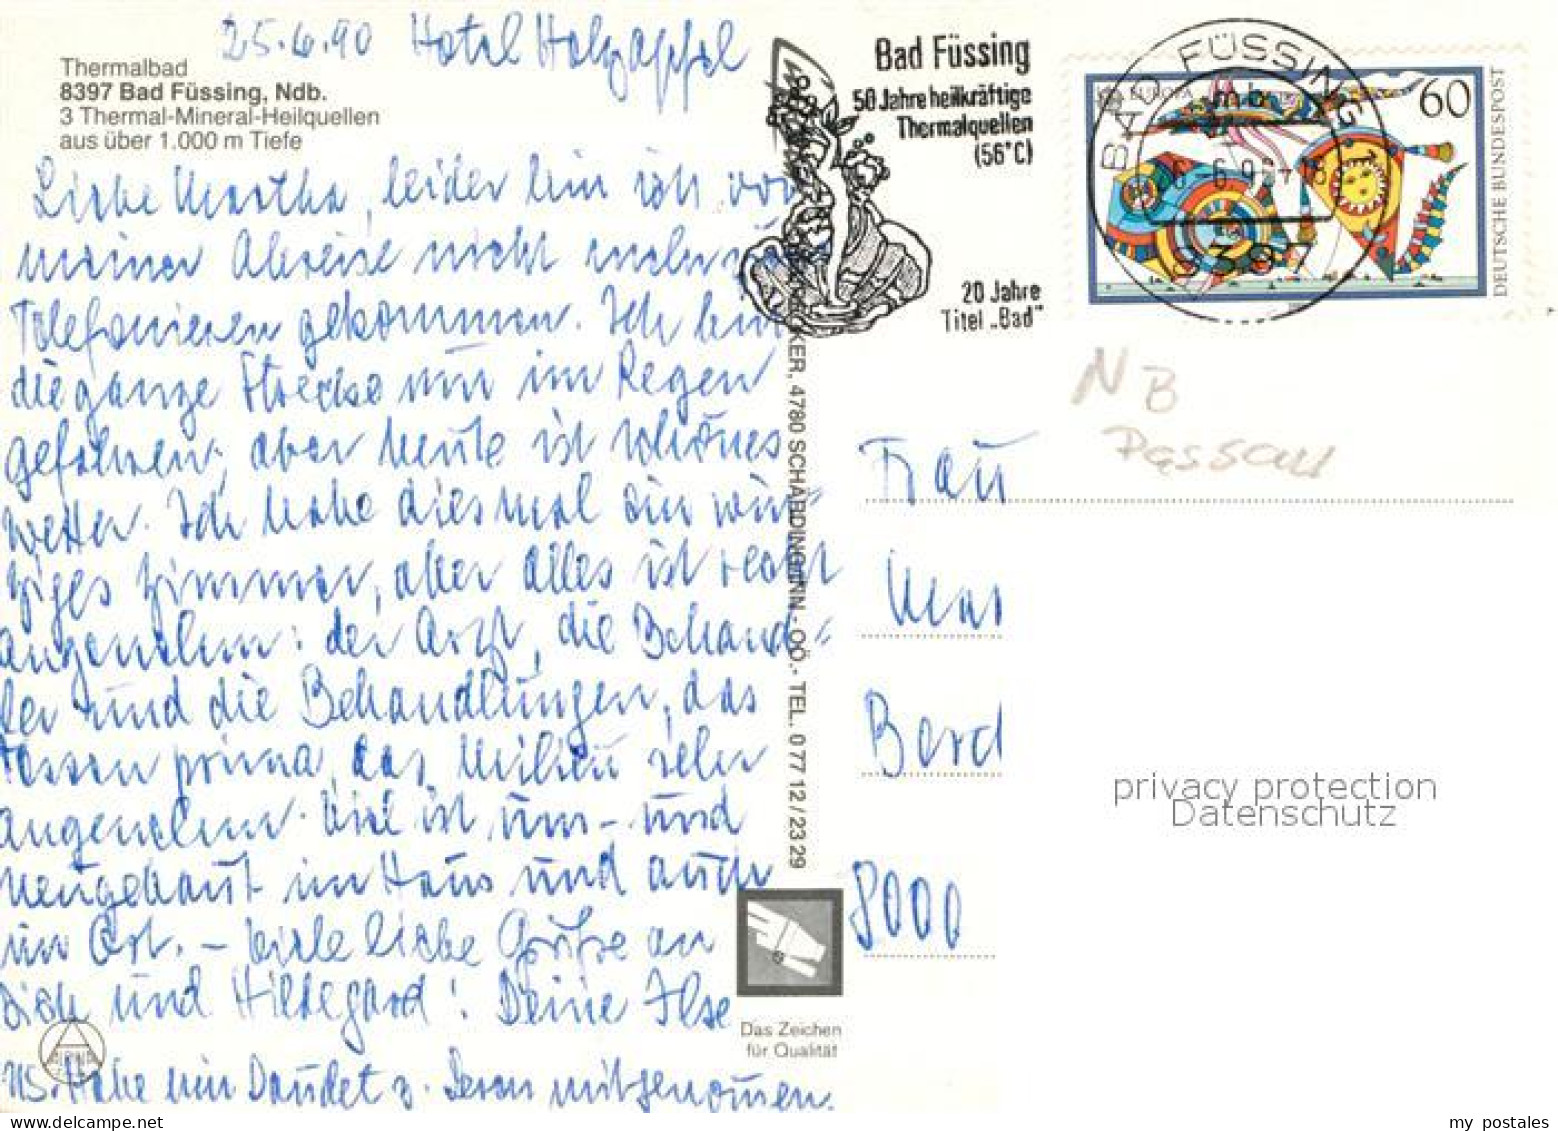 25.6.90 Hotel Holzapfel
Thermalbad
8397 Bad Füssing, Ndb.
3 Thermal-Mineral-Heilquellen
aus über 1.000 m Tiefe
Liebe Martha, leider bin ich vor
meiner Abreise nicht mehr zum
Telefonieren gekommen. Ich bin
die ganze Strecke nur im Regen
gefahren, aber heute ist schönes
Wetter. Ich habe diesmal ein win-
ziges Zimmer, aber alles ist recht
angenehm: der Arzt, die Behand-
ler und die Behandlungen, das
Essen prima, das Milieu sehr
angenehm. Viel ist um- und
neugebaut im Haus und auch
im Ort. – Viele liebe Grüße an
Dich und Hildegard! Deine Ilse
NS. Habe ein Daudet z. Lesen mitgenommen.
Bad Füssing
50 Jahre heilkräftige
Thermalquellen
(56°C)
20 Jahre
Titel „Bad"
BAD FÜSSING
mb
8397
EUROPA
60
DEUTSCHE BUNDESPOST
NB
Passau
Frau
Mar
Bord
8000
KER, 4780 SCHÄRDING/INN - OÖ.- TEL. 0 77 12 / 23 29
Das Zeichen
für Qualität
ALPNA
privacy protection
Datenschutz
my postales